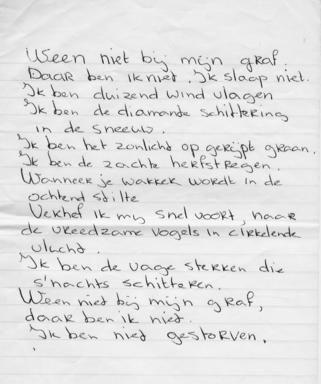 Ween niet bij mijn graf.
Daar ben ik niet. Ik slaap niet.
Ik ben duizend wind vlagen
Ik ben de diamande schittering
in de sneeuw.
Ik ben het zonlicht op gerijpt graan.
Ik ben de zachte herfstregen.
Wanneer je wakker wordt in de
ochtend stilte
Verhef ik mij snel voort, naar
de vreedzame vogels in cirkelende
vlucht.
Ik ben de vage sterren die
s'nachts schitteren.
Ween niet bij mijn graf,
daar ben ik niet.
Ik ben niet gestorven.